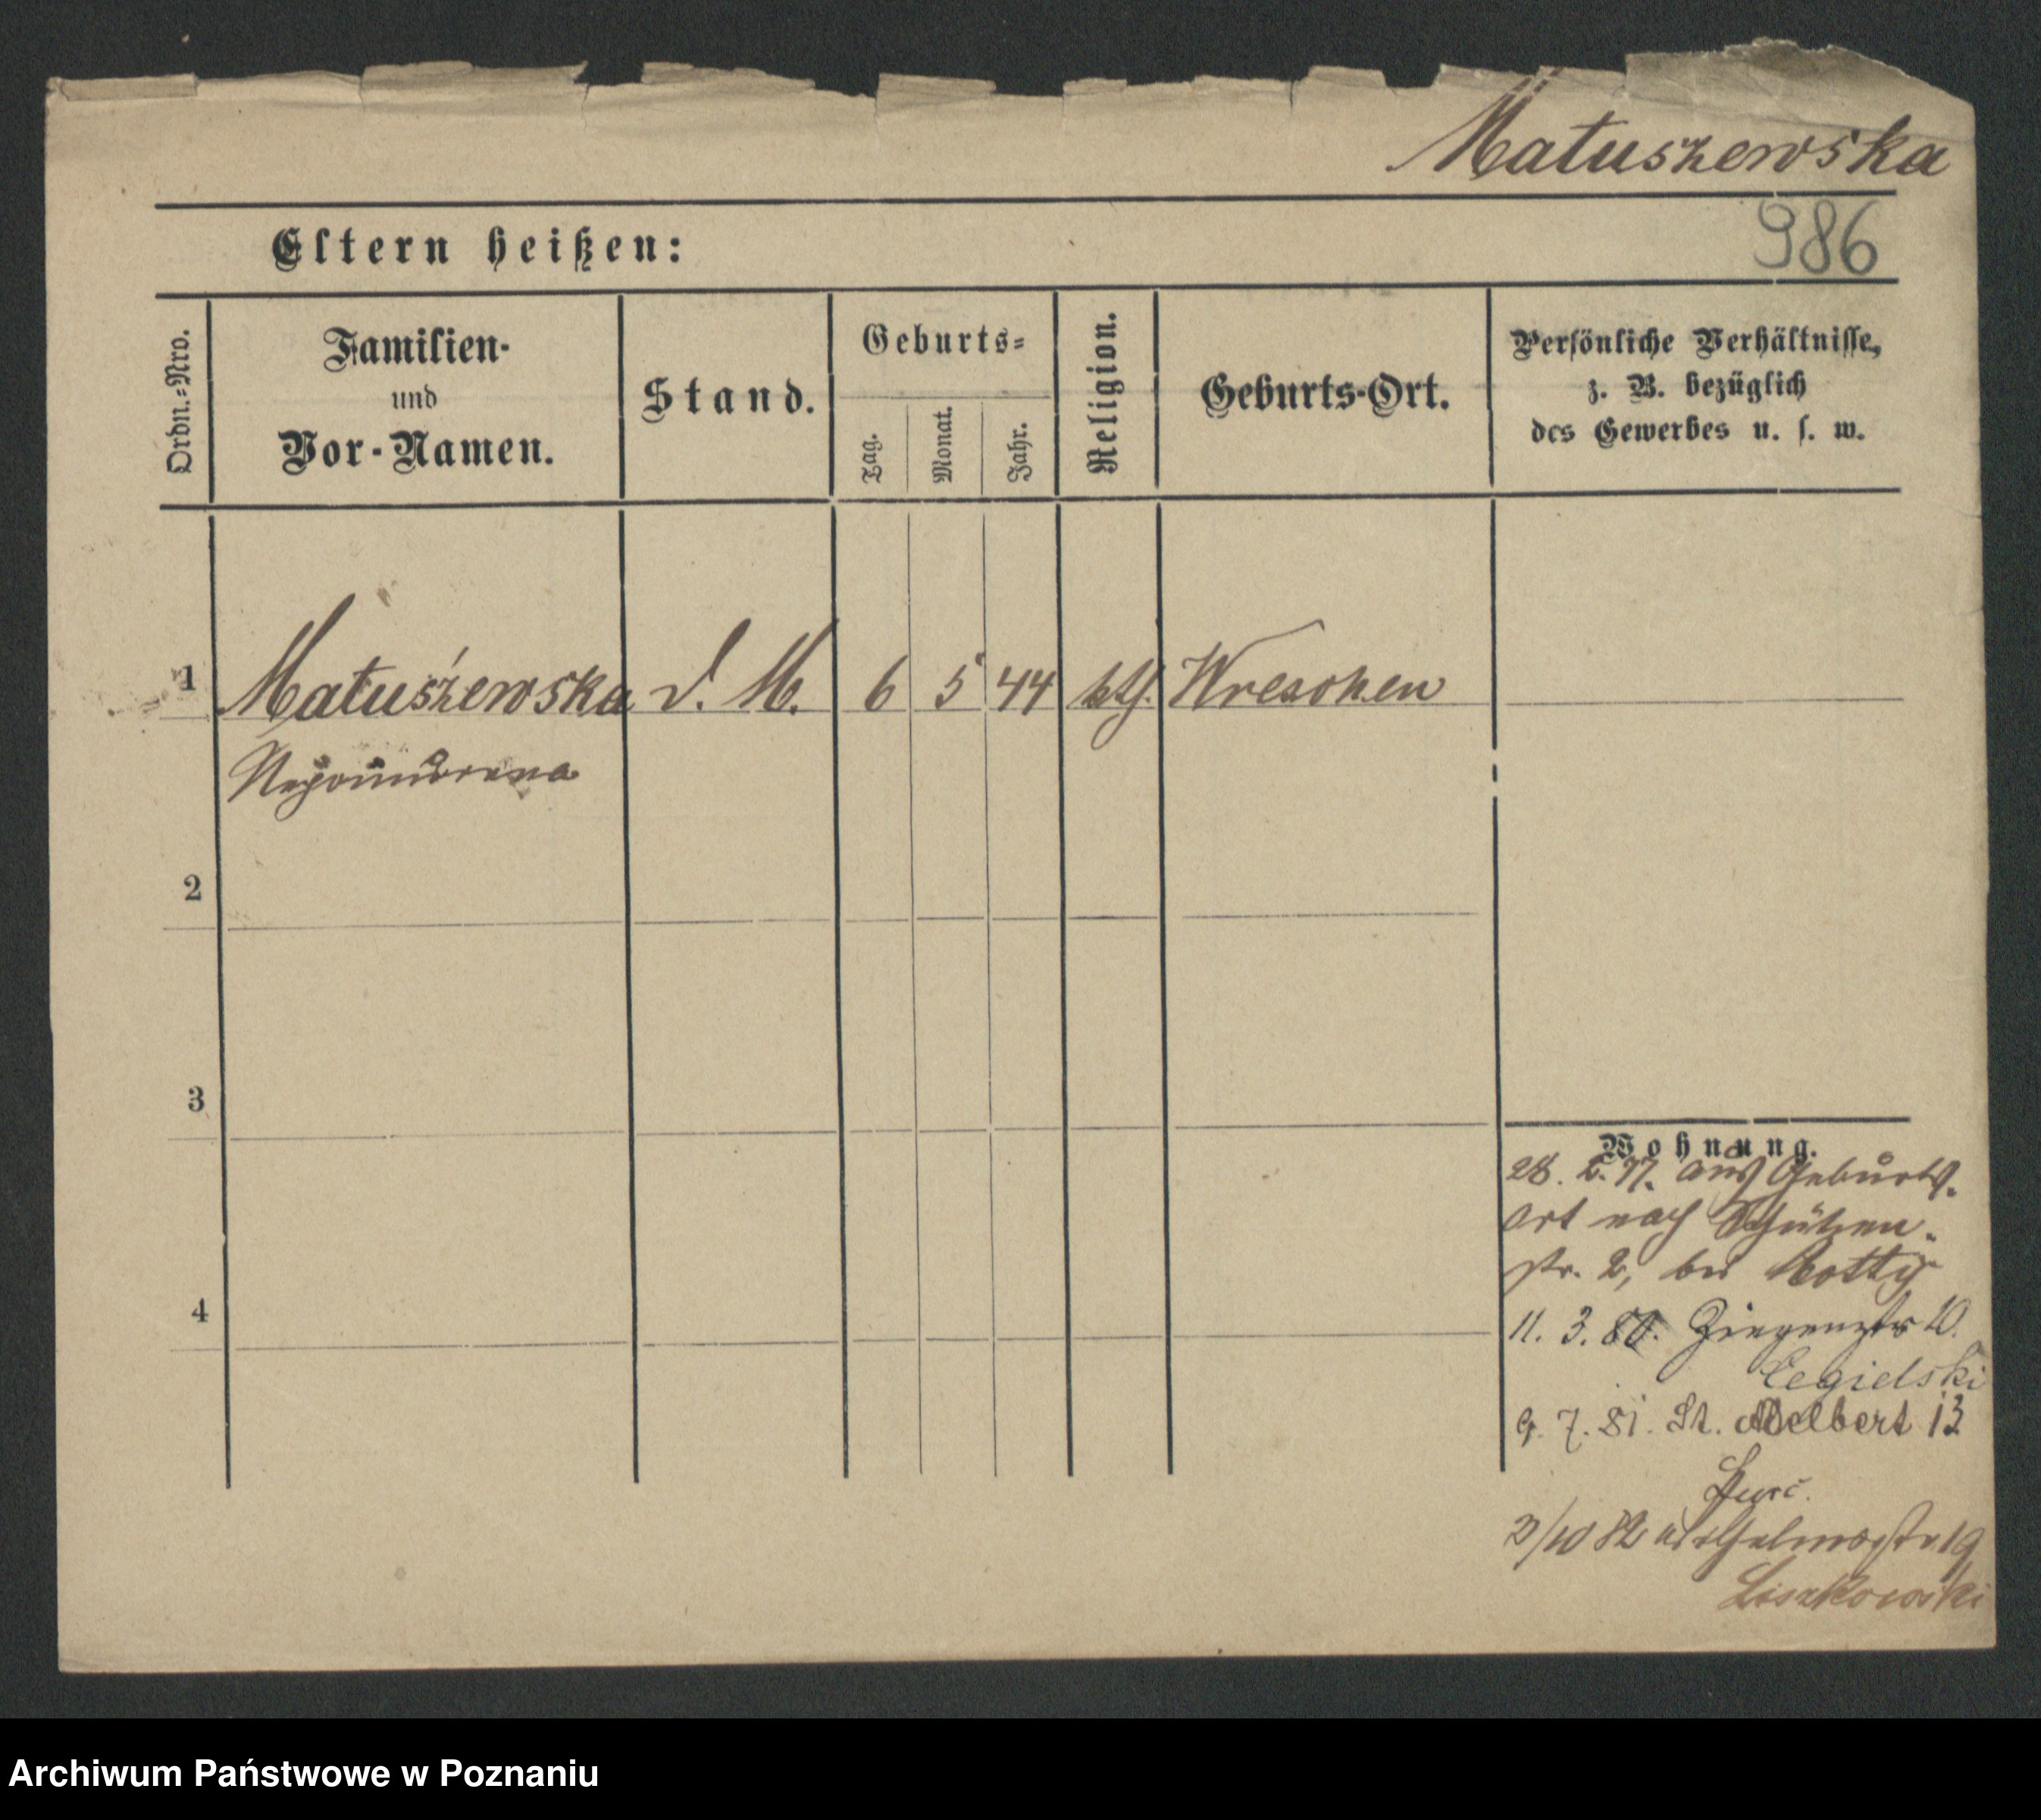 Matuszewska
986
Eltern heißen:
Ordn.-Nro.
Familien-
und
Vor-Namen.
Stand.
Geburts-
Tag.
Monat.
Jahr.
Religion.
Geburts-Ort.
Persönliche Verhältnisse,
z. B. bezüglich
des Gewerbes u. s. w.
1 Matuszewska d. M. 6 5 44 kth. Wreschen
Nepomucena
2
3
4
Wohnung.
28. 2. 77. aus Geburts-
ort nach Schützen-
str. 2, bei
11. 3. 80. Ziegenstr 10.
Cegielski
9. 7. 81. St. Adelbert 13
/10 82 Wilhelmsstr 19
Liszkowski
Archiwum Państwowe w Poznaniu